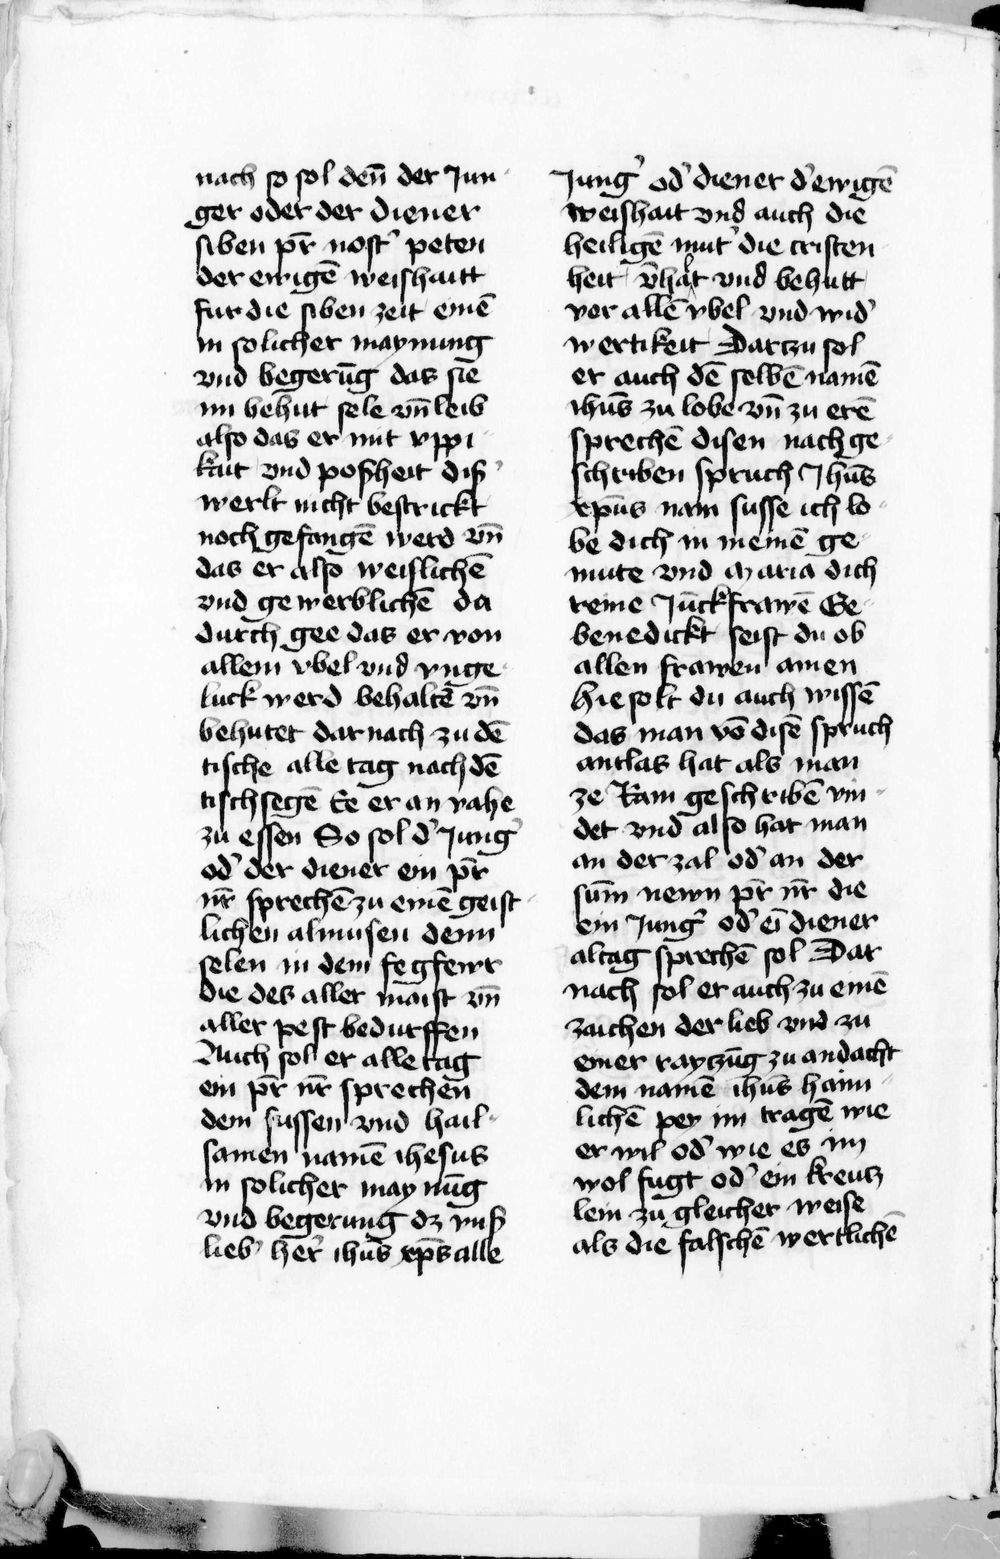 nach so sol den̄ der Jun-
ger oder der diener
siben pr̄ nost' peten
der ewigē weishaitt
fur die siben zeit einē
in solicher maynung
vnd begerūg das sie
im behut sele vn̄ leib
also das er mit vppi-
kait vnd posheit diß'
werlt nicht bestrickt
noch gefangē werd vn̄
das er also weislichē
vnd gewerblichē da
durch gee das er von
allem vbel vnd vnge-
luck werd behaltē vn̄
behutet dar nach zu dē
tische alle tag nach dē
tischsegē Ee er an vahe
zu essen So sol d' Jung'
od' der diener ein pr̄
nr̄ sprechē zu einē geist-
lichen almusen denn
selen in dem fegfewr
die des aller maist vn̄
aller pest bedurffen
Auch sol er alle tag
ein pr̄ nr̄ sprechen
dem sussen vnd hail-
samen namē ihesus
in solicher maynūg
vnd begerung dz vnß
lieb' her' ihūs xp̄s alle
Jung' od' diener d' ewigē
weishait vnd auch die
heiligē mut' die cristen-
heit v̄halt vnd behutt
vor allē vbel vnd wid'
wertikeit Dartzu sol
er auch dē selbē namē
ihūs zu lobe vn̄ zu erē
sprechē disen nach ge-
schriben spruch Jhūs
xp̄us nam susse ich lo-
be dich in meinē ge-
mute vnd Maria dich
reine Jūckfrawē Ge-
benedickt seist du ob
allen frawen amen
Hie solt du auch wissē
das man vō disē spruch
antlas hat als man
ze Ram geschribē vin-
det vnd also hat man
an der zal od' an der
sum̄ newn pr̄ nr̄ die
ein Jung' od' eī diener
altag sprechē sol Dar
nach sol er auch zu einē
zaichen der lieb vnd zu
einer raytzūg zu andacht
dem namē ihūs haim-
lichē pey im tragē wie
er wil od' wie es im
wol fugt od' ein kreutz
lein zu gleicher weise
als die falschē wertlichē